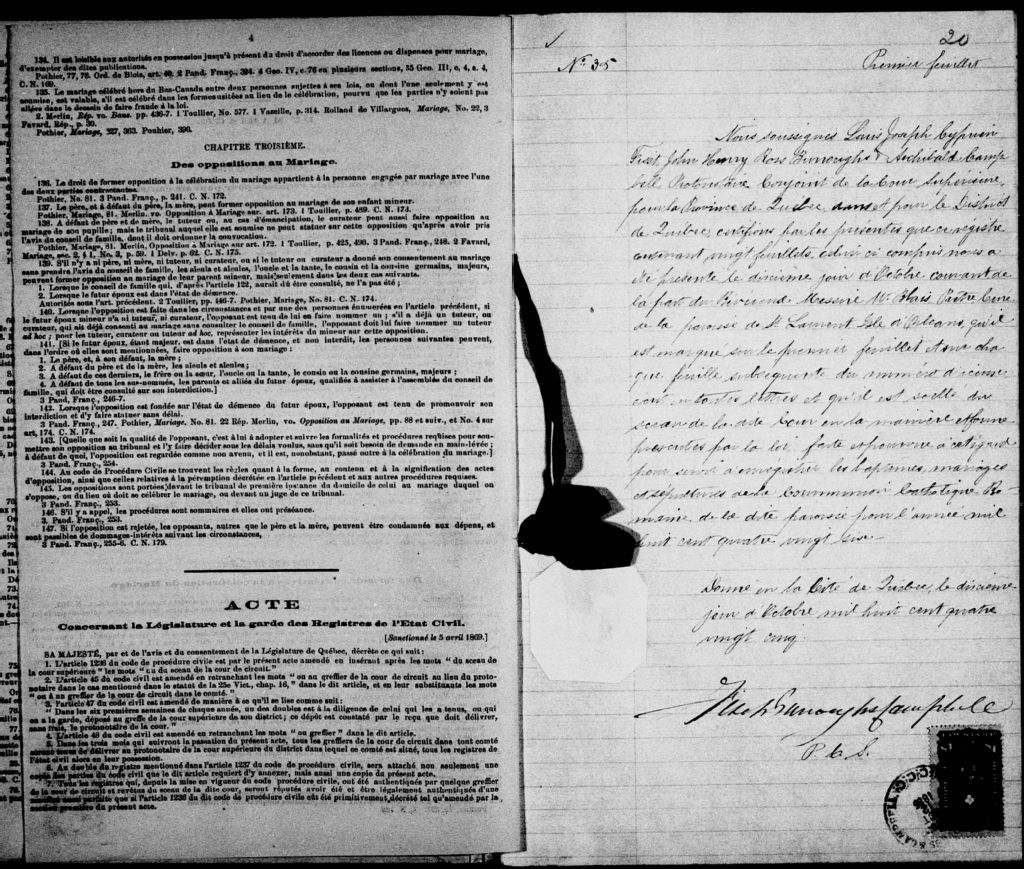 4
134. Il est loisible aux autorités en possession jusqu'à présent du droit d'accorder des licences ou dispenses pour mariage,
d'exempter des dites publications.
Pothier, 77, 78. Ord. de Blois, art. 40. 2 Pand. Franç., 324. 4 Geo. IV, c. 76 en plusieurs sections, 35 Geo. III, c. 4, s. 4,
C. N. 169.
135. Le mariage célébré hors du Bas-Canada entre deux personnes sujettes à ses lois, ou dont l'une seulement y est
soumise, est valable, s'il est célébré dans les formes usitées au lieu de la célébration, pourvu que les parties n'y soient pas
allées dans le dessein de faire fraude à la loi.
2. Merlin, Rép. vo. Bans. pp. 436-7. 1 Toullier, No. 577. 1 Vazeille, p. 314. Rolland de Villargues, Mariage, No. 22, 3
Favard, Rép., p. 30.
Pothier, Mariage, 327, 363. Pouhier, 390.
CHAPITRE TROISIÈME.
Des oppositions au Mariage.
136. Le droit de former opposition à la célébration du mariage appartient à la personne engagée par mariage avec l'une
des deux parties contractantes.
Pothier, No. 81. 3 Pand. Franç., p. 241. C. N. 172.
137. Le père, et à défaut du père, la mère, peut former opposition au mariage de son enfant mineur.
Pothier, Mariage, 81. Merlin. vo. Opposition à Mariage sur. art. 173. 1 Touiller, p. 489. C. N. 174.
138. A défaut de père et de mère, le tuteur ou, au cas d'émancipation, le curateur peut aussi faire opposition au
mariage de son pupille; mais le tribunal auquel elle est soumise ne peut statuer sur cette opposition qu'après avoir pris
l'avis du conseil de famille, dont il doit ordonner la convocation.
Pothier, Mariage, 81. Merlin, Opposition à Mariage sur art. 172. 1 Toulier, p. 425, 490. 3 Pand. Franç., 248. 2 Favard,
Mariage, sec. 2, § 1, No. 3, p. 59. 1 Delv. p. 62. C. N. 175.
139. S'il n'y a ni père, ni mère, ni tuteur, ni curateur, ou si le tuteur ou curateur a donné son consentement au mariage
sans prendre l'avis du conseil de famille, les aïeuls et aïeules, l'oncle et la tante, le cousin et la cousine germains, majeurs,
peuvent former opposition au mariage de leur parent mineur, mais seulement dans les deux cas suivants.
1. Lorsque le conseil de famille qui, d'après l'article 122, aurait dû être consulté, ne l'a pas été;
2. Lorsque le futur époux est dans l'état de démence.
Autorités sous l'art. précédent. 2 Touiller, pp. 446-7. Pothier, Mariage, No. 81. C. N. 174.
140. Lorsque l'opposition est faite dans les circonstances et par une des personnes énumérées en l'article précédent, si
le futur époux mineur n'a ni tuteur, ni curateur, l'opposant est tenu de lui en faire nommer un; s'il a déjà un tuteur, ou
curateur, qui ait déjà consenti au mariage sans consulter le conseil de famille, l'opposant doit lui faire nommer un tuteur
ad hoc; pour les tuteur, curateur ou tuteur ad hoc, représenter les intérêts du mineur sur cette opposition.
141. [Si le futur époux, étant majeur, est dans l'état de démence, et non interdit, les personnes suivantes peuvent,
dans l'ordre où elles sont mentionnées, faire opposition à son mariage:
1. Le père, et, à son défaut, la mère;
2. A défaut du père et de la mère, les aïeuls et aïeules;
3. A défaut de ces derniers, le frère ou la sœur, l'oncle ou la tante, le cousin ou la cousine germains, majeurs;
4. A défaut de tous les sus-nommés, les parents et alliés du futur époux, qualifiés à assister à l'assemblée du conseil de
famille, qui doit être consulté sur son interdiction.]
3 Pand. Franç., 246-7.
142. Lorsque l'opposition est fondée sur l'état de démence du futur époux, l'opposant est tenu de promouvoir son
interdiction et d'y faire statuer sans délai.
3 Pand. Franç., 247. Pothier, Mariage, No. 81. 22 Rép. Merlin, vo. Opposition au Mariage, pp. 88 et suiv., et No. 4 sur
art. 174. C. N. 174.
143. [Quelle que soit la qualité de l'opposant, c'est à lui à adopter et suivre les formalités et procédures requises pour sou-
mettre son opposition au tribunal et l'y faire décider sous les délais voulus, sans qu'il soit besoin de demande en main-levée;
à défaut de quoi, l'opposition est regardée comme non avenu, et il est, nonobstant, passé outre à la célébration du mariage.]
3 Pand. Franç., 254.
144. Au code de Procédure Civile se trouvent les règles quant à la forme, au contenu et à la signification des actes
d'opposition, ainsi que celles relatives à la péremption décrétée en l'article précédent et aux autres procédures requises.
145. Les oppositions sont portées devant le tribunal de première instance du domicile de celui au mariage duquel on
s'oppose, ou du lieu où doit se célébrer le mariage, ou devant un juge de ce tribunal.
3 Pand. Franç., 253.
146. S'il y a appel, les procédures sont sommaires et elles ont préséance.
3. Pand. Franç., 253.
147. Si l'opposition est rejetée, les opposants, autres que le père et la mère, peuvent être condamnés aux dépens, et
sont passibles de dommages-intérêts suivant les circonstances,
3 Pand. Franç., 255-6. C. N. 179.
ACTE
Concernant la Législature et la garde des Registres de l'Etat Civil.
[Sanctionné le 5 avril 1869.]
SA MAJESTÉ, par et de l'avis et du consentement de la Législature de Québec, décrète ce qui suit:
1. L'article 1236 du code de procédure civile est par le présent acte amendé en insérant après les mots "du sceau de
la cour supérieure" les mots "ou du sceau de la cour de circuit."
2. L'article 45 du code civil est amendé en retranchant les mots "ou au greffier de la cour de circuit au lieu du proto-
notaire dans le cas mentionné dans le statut de la 25e Vict., chap. 16," dans le dit article, et en leur substituants les mots
"ou à un greffier de la cour de circuit dans le comté."
3. L'article 47 du code civil est amendé de manière à ce qu'il se lise comme suit:
"Dans les six premières semaines de chaque année, un des doubles est à la diligence de celui qui les a tenus, ou qui
en a la garde, déposé au greffe de la cour supérieure de son district; ce dépôt est constaté par le reçu que doit délivrer,
sans frais, le protonotaire de la cour."
4. L'article 48 du code civil est amendé en retranchant les mots "ou greffier" dans le dit article.
5. Dans les trois mois qui suivront la passation du présent acte, tous les greffiers de la cour de circuit dans tout comté
seront tenus de délivrer au protonotaire de la cour supérieure du district dans lequel ce comté est situé, tous les registres de
l'état civil alors en leur possession.
6. Au double du registre mentionné dans l'article 1237 du code de procédure civile, sera attaché non seulement une
copie des parties du code civil que le dit article requiert d'y annexer, mais aussi une copie du présent acte.
7. Tous les registres qui, depuis la mise en vigueur du code de procédure civile, ont été authentiqués par quelque greffier
de la cour de circuit et revêtus du sceau de la dite cour, seront réputés avoir été et être légalement authentiqués d'une
manière aussi parfaite que si l'article 1236 du dit code de procédure civile eût été primitivement décrété tel qu'amendé par la
section première du présent acte.
20
No 35
Premier feuillet
Nous soussignes Louis Joseph Cyprien
Fiset, John Henry Ross Burroughs & Archibald Camp
bell Protonotaire Conjoint de la Cour Supérieure
pour la Province de Québec, dans et pour le District
de Québec, certifions par les présentes que ce registre
contenant vingt feuillets, celui ci compris nous a
été présenté le dixième jour d'Octobre courant de
la part du Révérend Messire Mr. Blais Prêtre Curé
de la paroisse de St Laurent Isle d'Orleans, qu'il
est marqué sur le premier feuillet et sur cha
que feuille subsequente du numero d'icelui
écrit en toutes lettres et qu'il est scellé du
sceau de la dite Cour en la manière et forme
prescrites par la loi faite et pourvue à cet égard
pour servir à enregistrer les baptêmes, mariages
et sépultures de la Communion Catholique Ro
maine de la dite paroisse pour l'année mil
huit cent quatre vingt six.
Donné en la Cité de Québec, le dixième
jour d'Octobre mil huit cent quatre
vingt cinq.
Fiset Burroughs Campbell
P. C. S.
& CAMPBELL